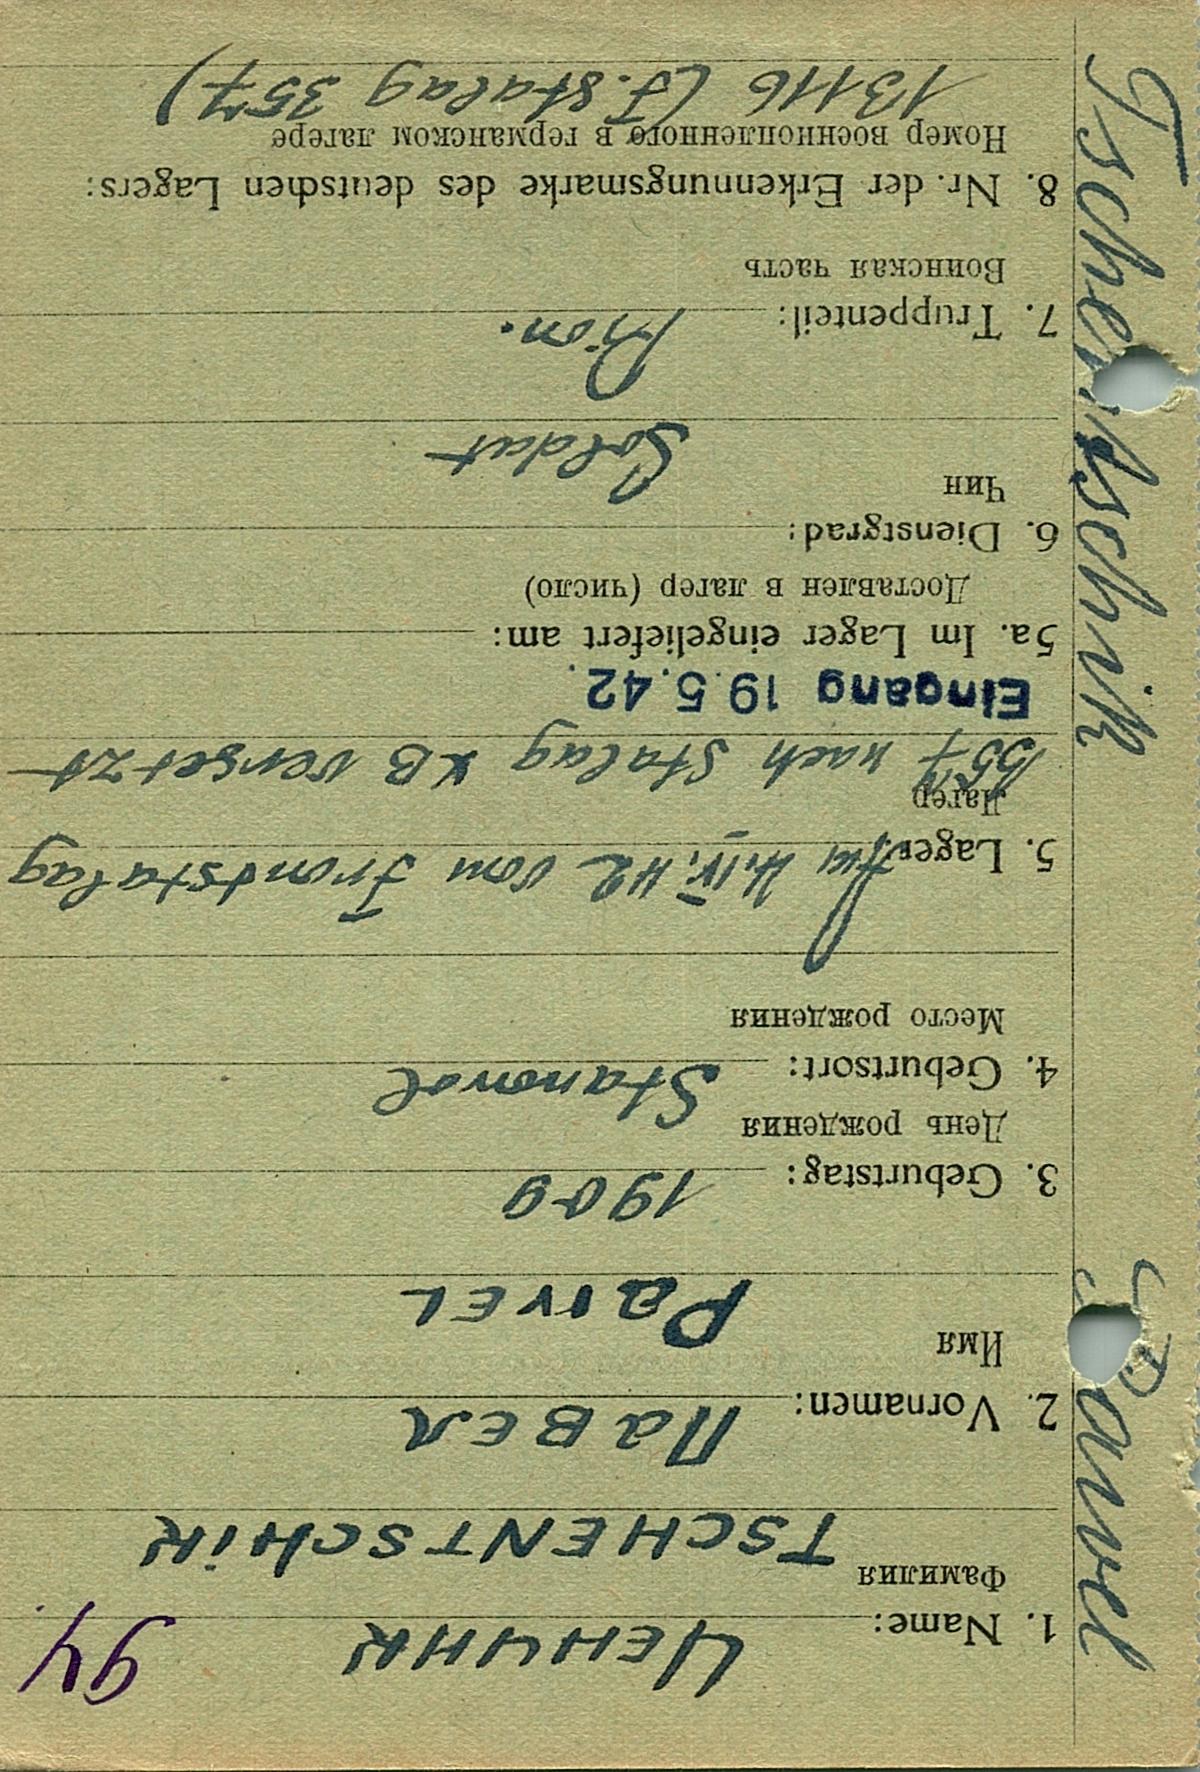 94
1. Name: Ченчик
Фамилия
TSCHENTSCHiK
2. Vornamen: Павел
Имя
PaWEL
3. Geburtstag: 1909
День рождения
4. Geburtsort: Stanovol
Место рождения
5. Lager: Am 4.IV.42 vom Frontstalag
Лагерь
357 nach Stalag XB versetzt
Eingang 19.5.42.
5a. Im Lager eingeliefert am:
Доставлен в лагер (число)
6. Dienstgrad:
Чин
Soldat
7. Truppenteil: Pion.
Воинская часть
8. Nr. der Erkennungsmarke des deutschen Lagers:
Номер военнопленного в германском лагере
13116 (F. Stalag 357)
Tschentschik
Pawel